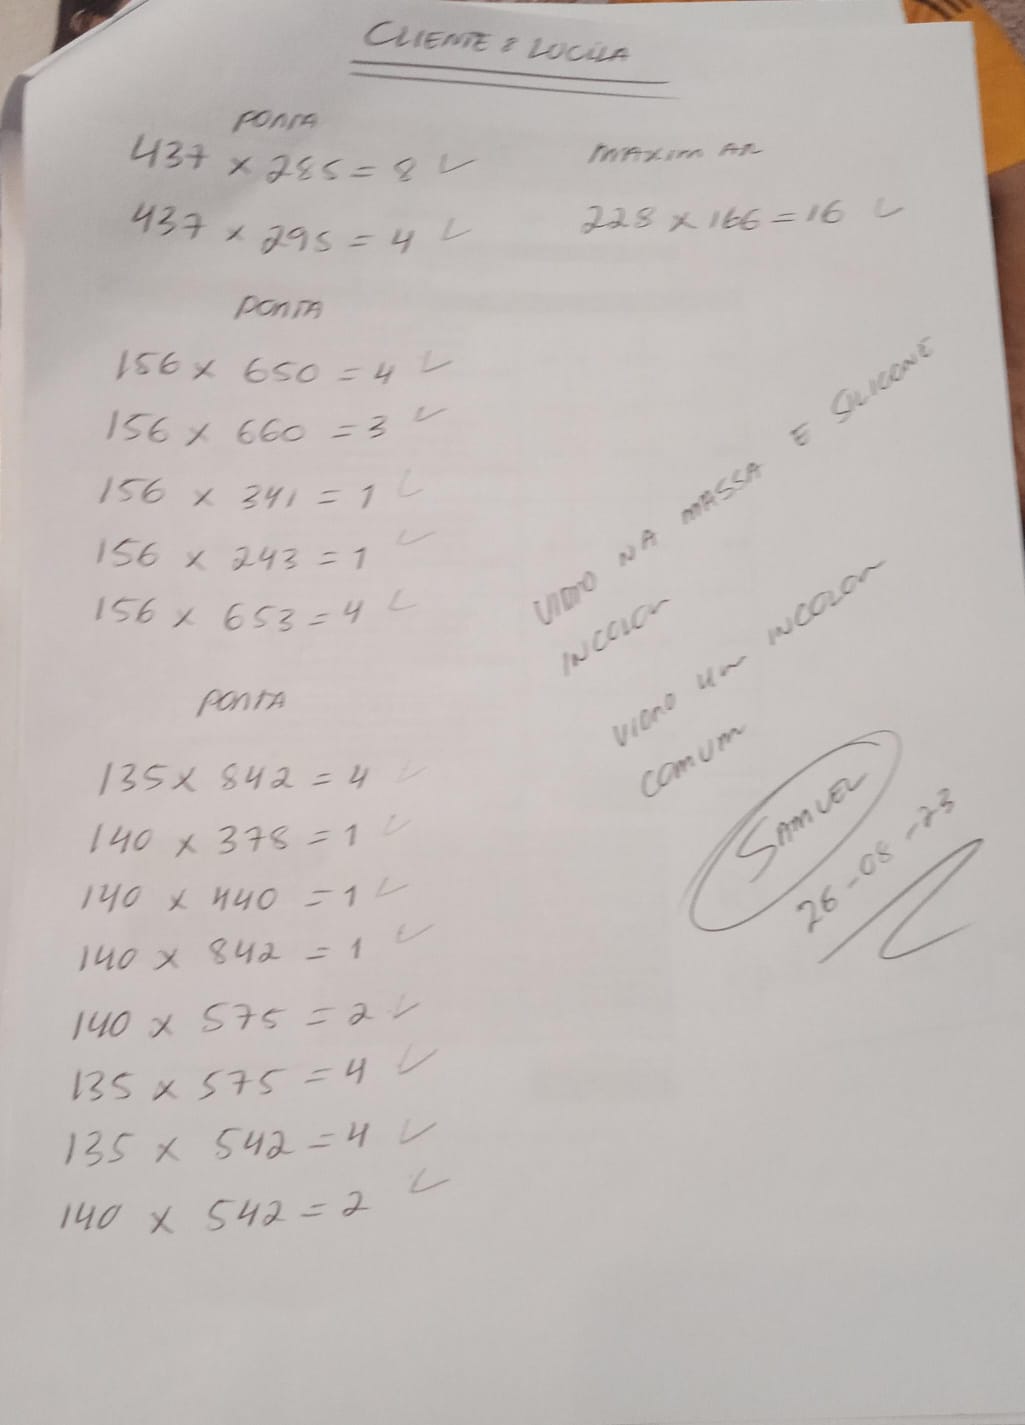 CLIENTE : LUCILA
PORTA
437 x 285 = 8
437 x 295 = 4
MAXIM AR
228 x 166 = 16
PORTA
156 x 650 = 4
156 x 660 = 3
156 x 341 = 1
156 x 243 = 1
156 x 653 = 4
PORTA
135 x 842 = 4
140 x 378 = 1
140 x 440 = 1
140 x 842 = 1
140 x 575 = 2
135 x 575 = 4
135 x 542 = 4
140 x 542 = 2
VIDRO NA MASSA E SILICONE
INCOLOR
VIDRO 4m INCOLOR
COMUM
SAMUEL
26-08-23